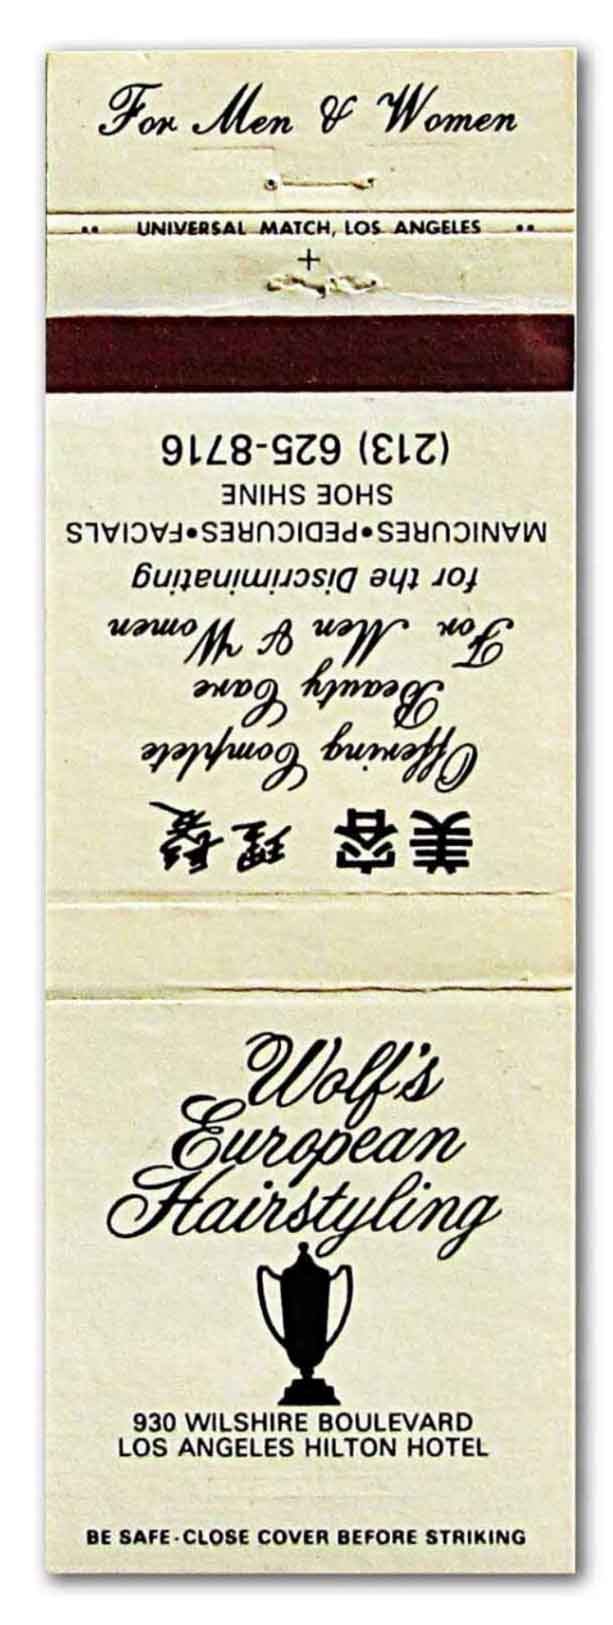 For Men & Women
UNIVERSAL MATCH, LOS ANGELES
美容 理髮
Offering Complete
Beauty Care
For Men & Women
for the Discriminating
MANICURES•PEDICURES•FACIALS
SHOE SHINE
(213) 625-8716
Wolf's
European
Hairstyling
930 WILSHIRE BOULEVARD
LOS ANGELES HILTON HOTEL
BE SAFE-CLOSE COVER BEFORE STRIKING